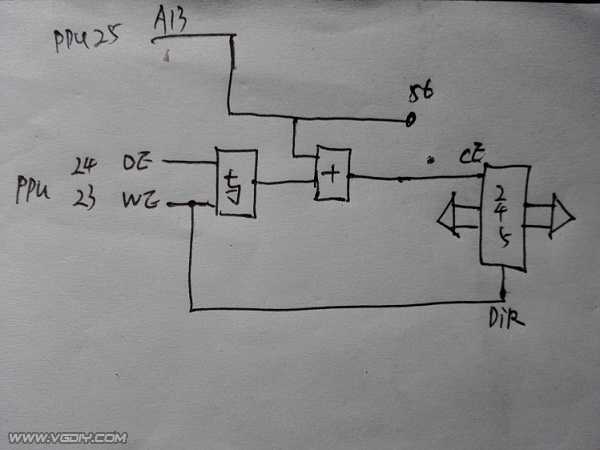 PPU 25 A13
56
24 OE
CE
PPU
23 WE
与
+
245
DIR
WWW.VGDIY.COM